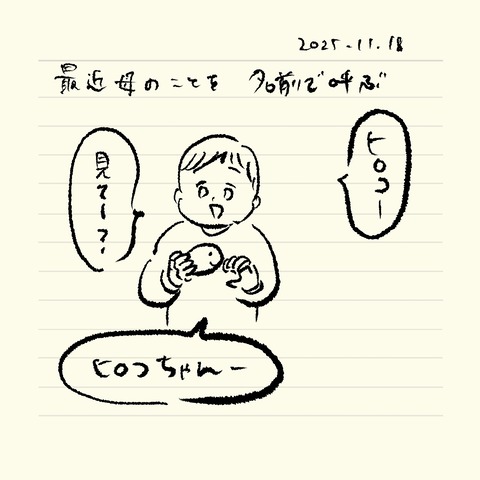 2025.11.18
最近母のことを 名前で呼ぶ
ヒロコー
見てー?
ヒロコちゃんー